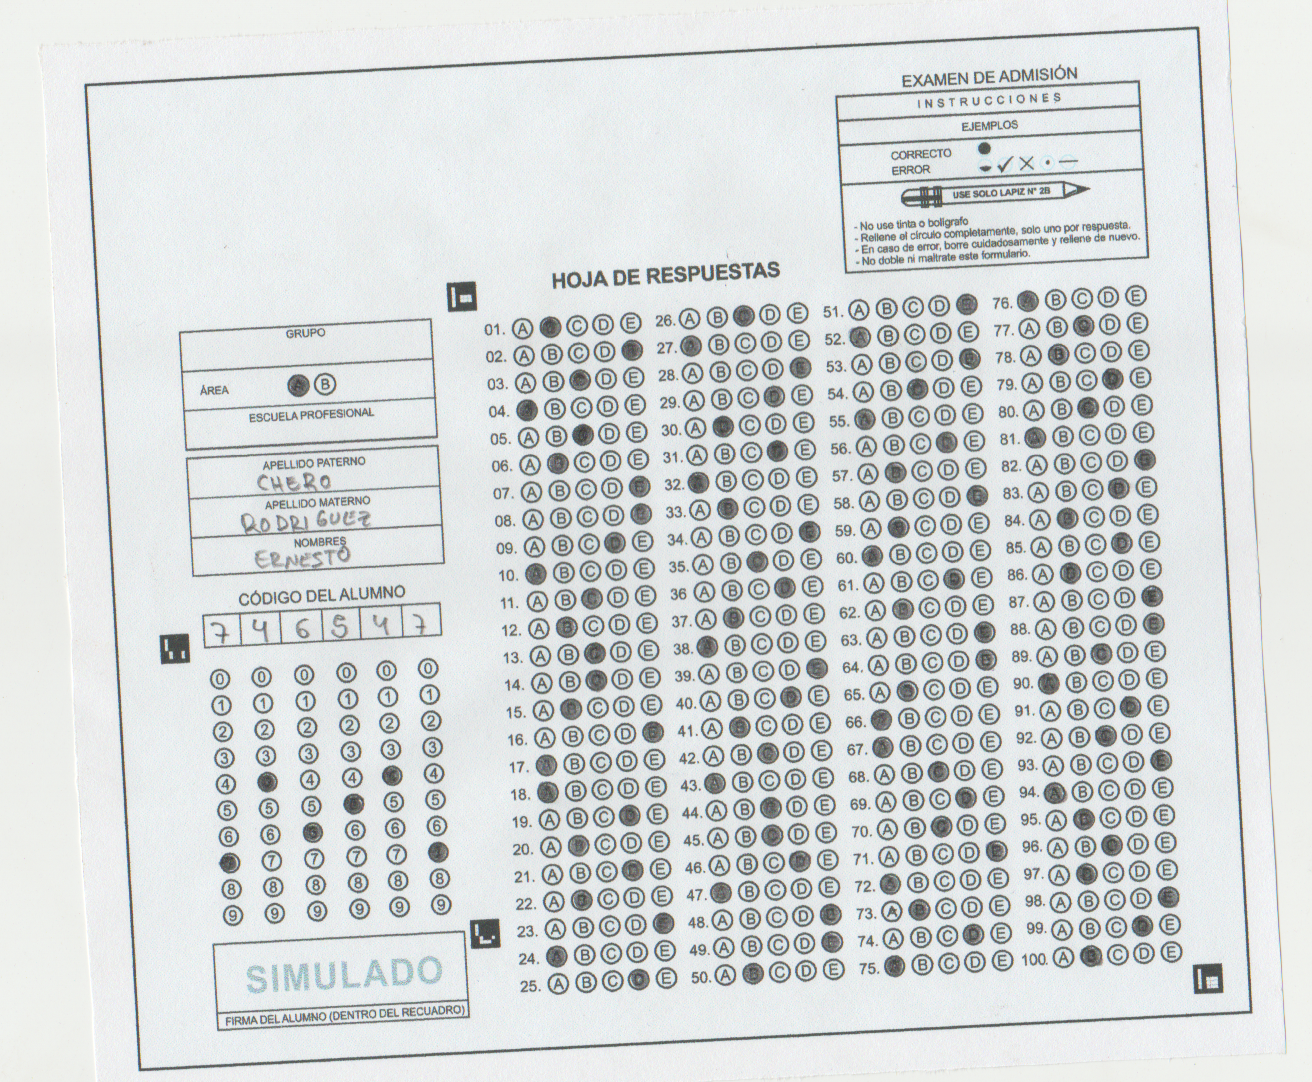 EXAMEN DE ADMISIÓN
INSTRUCCIONES
EJEMPLOS
CORRECTO
ERROR
USE SOLO LAPIZ N° 2B
- No use tinta o bolígrafo
- Rellene el círculo completamente, solo uno por respuesta.
- En caso de error, borre cuidadosamente y rellene de nuevo.
- No doble ni maltrate este formulario.
HOJA DE RESPUESTAS
GRUPO
ÁREA A B
ESCUELA PROFESIONAL
APELLIDO PATERNO
CHERO
APELLIDO MATERNO
RODRIGUEZ
NOMBRES
ERNESTO
CÓDIGO DEL ALUMNO
7 4 6 5 4 7
0 0 0 0 0 0
1 1 1 1 1 1
2 2 2 2 2 2
3 3 3 3 3 3
4 4 4 4
5 5 5 5 5
6 6 6 6 6
7 7 7 7
8 8 8 8 8 8
9 9 9 9 9 9
SIMULADO
FIRMA DEL ALUMNO (DENTRO DEL RECUADRO)
01. A C D E
02. A B C D
03. A B D E
04. B C D E
05. A B D E
06. A C D E
07. A B C D
08. A B C D
09. A B C E
10. B C D E
11. A B D E
12. A C D E
13. A B D E
14. A B D E
15. A C D E
16. A B C D
17. B C D E
18. B C D E
19. A B C E
20. A C D E
21. A B C E
22. A C D E
23. A B C D
24. B C D E
25. A B C E
26. A B D E
27. B C D E
28. A B C D
29. A B C E
30. A C D E
31. A B C E
32. B C D E
33. A C D E
34. A B C D
35. A B D E
36 A B C E
37. A C D E
38. B C D E
39. A B C D
40. A B C E
41. A C D E
42. A B D E
43. B C D E
44. A B D E
45. A B D E
46. A B C E
47. B C D E
48. A B C D
49. A B C D
50. A C D E
51. A B C D
52. B C D E
53. A B C D
54. A B D E
55. B C D E
56. A B C E
57. A C D E
58. A B C D
59. A C D E
60. B C D E
61. A B C E
62. A C D E
63. A B C D
64. A B C D
65. A C D E
66. B C D E
67. B C D E
68. A B D E
69. A B C E
70. A B D E
71. A B C D
72. B C D E
73. A C D E
74. A B C E
75. B C D E
76. B C D E
77. A B D E
78. A C D E
79. A B C E
80. A B D E
81. B C D E
82. A B C D
83. A B C E
84. A C D E
85. A B C E
86. A C D E
87. A B C D
88. A B C D
89. A B D E
90. B C D E
91. A B C E
92. A B D E
93. A B C D
94. B C D E
95. A C D E
96. A B D E
97. A C D E
98. A B C D
99. A B C E
100. A C D E